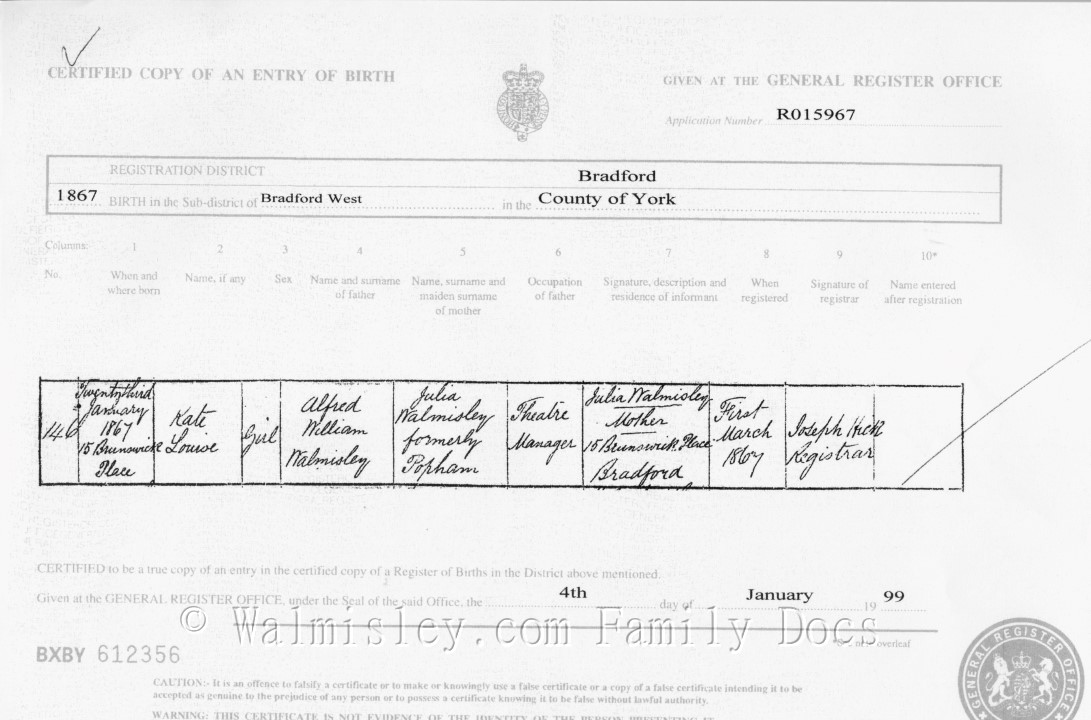 CERTIFIED COPY OF AN ENTRY OF BIRTH
GIVEN AT THE GENERAL REGISTER OFFICE
Application Number R015967
REGISTRATION DISTRICT Bradford
1867 BIRTH in the Sub-district of Bradford West in the County of York
Columns: 1 2 3 4 5 6 7 8 9 10*
No. When and where born
Name, if any
Sex
Name and surname of father
Name, surname and maiden surname of mother
Occupation of father
Signature, description and residence of informant
When registered
Signature of registrar
Name entered after registration
146
Twenty third
January
1867
15 Brunswick
Place
Kate
Louise
Girl
Alfred
William
Walmisley
Julia
Walmisley
formerly
Popham
Theatre
Manager
Julia Walmisley
Mother
15 Brunswick Place
Bradford
First
March
1867
Joseph Hick
Registrar
CERTIFIED to be a true copy of an entry in the certified copy of a Register of Births in the District above mentioned.
Given at the GENERAL REGISTER OFFICE, under the Seal of the said Office, the 4th day of January 19 99
© Walmisley.com Family Docs
overleaf
BXBY 612356
CAUTION:- It is an offence to falsify a certificate or to make or knowingly use a false certificate or a copy of a false certificate intending it to be
accepted as genuine to the prejudice of any person or to possess a certificate knowing it to be false without lawful authority.
WARNING: THIS CERTIFICATE IS NOT EVIDENCE OF THE IDENTITY OF THE PERSON PRESENTING IT
GENERAL REGISTER OFFICE